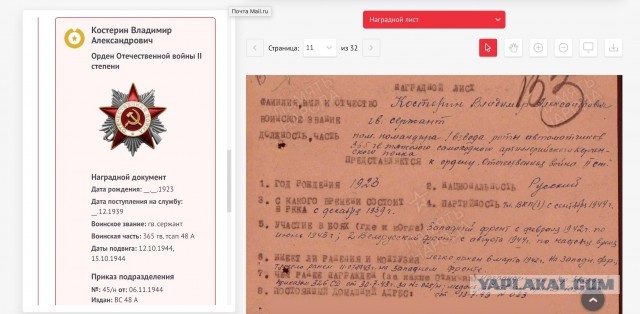 Почта Mail.ru
Костерин Владимир
Александрович
Орден Отечественной войны II
степени
Наградной документ
Дата рождения: __.__.1923
Дата поступления на службу:
__.12.1939
Воинское звание: гв. сержант
Воинская часть: 365 гв. тсап 48 А
Даты подвига: 12.10.1944,
15.10.1944
Приказ подразделения
№: 45/н от: 06.11.1944
Издан: ВС 48 А
Наградной лист
Страница: 11 из 32
НАГРАДНОЙ ЛИСТ
ФАМИЛИЯ, ИМЯ И ОТЧЕСТВО Костерин Владимир Александрович
ВОИНСКОЕ ЗВАНИЕ гв. сержант
ДОЛЖНОСТЬ, ЧАСТЬ пом. командира взвода роты автоматчиков
365 гв. тяжелого самоходного артиллерийского
полка
ПРЕДСТАВЛЯЕТСЯ к ордену "Отечественная война II ст."
1. ГОД РОЖДЕНИЯ 1923 2. НАЦИОНАЛЬНОСТЬ Русский
3. С КАКОГО ВРЕМЕНИ СОСТОИТ
В РККА с декабря 1939 г. 4. ПАРТИЙНОСТЬ
5. УЧАСТИЕ В БОЯХ (где и когда) Западный фронт с февраля 1942 г. по
1943 г.; 2 Белорусский фронт с августа 1944 г. по
6. ИМЕЕТ ЛИ РАНЕНИЯ И КОНТУЗИИ
на Западном фронте
7. ЧЕМ РАНЕЕ НАГРАЖДЕН
8. ПОСТОЯННЫЙ ДОМАШНИЙ АДРЕС:
YAPLAKAL.COM